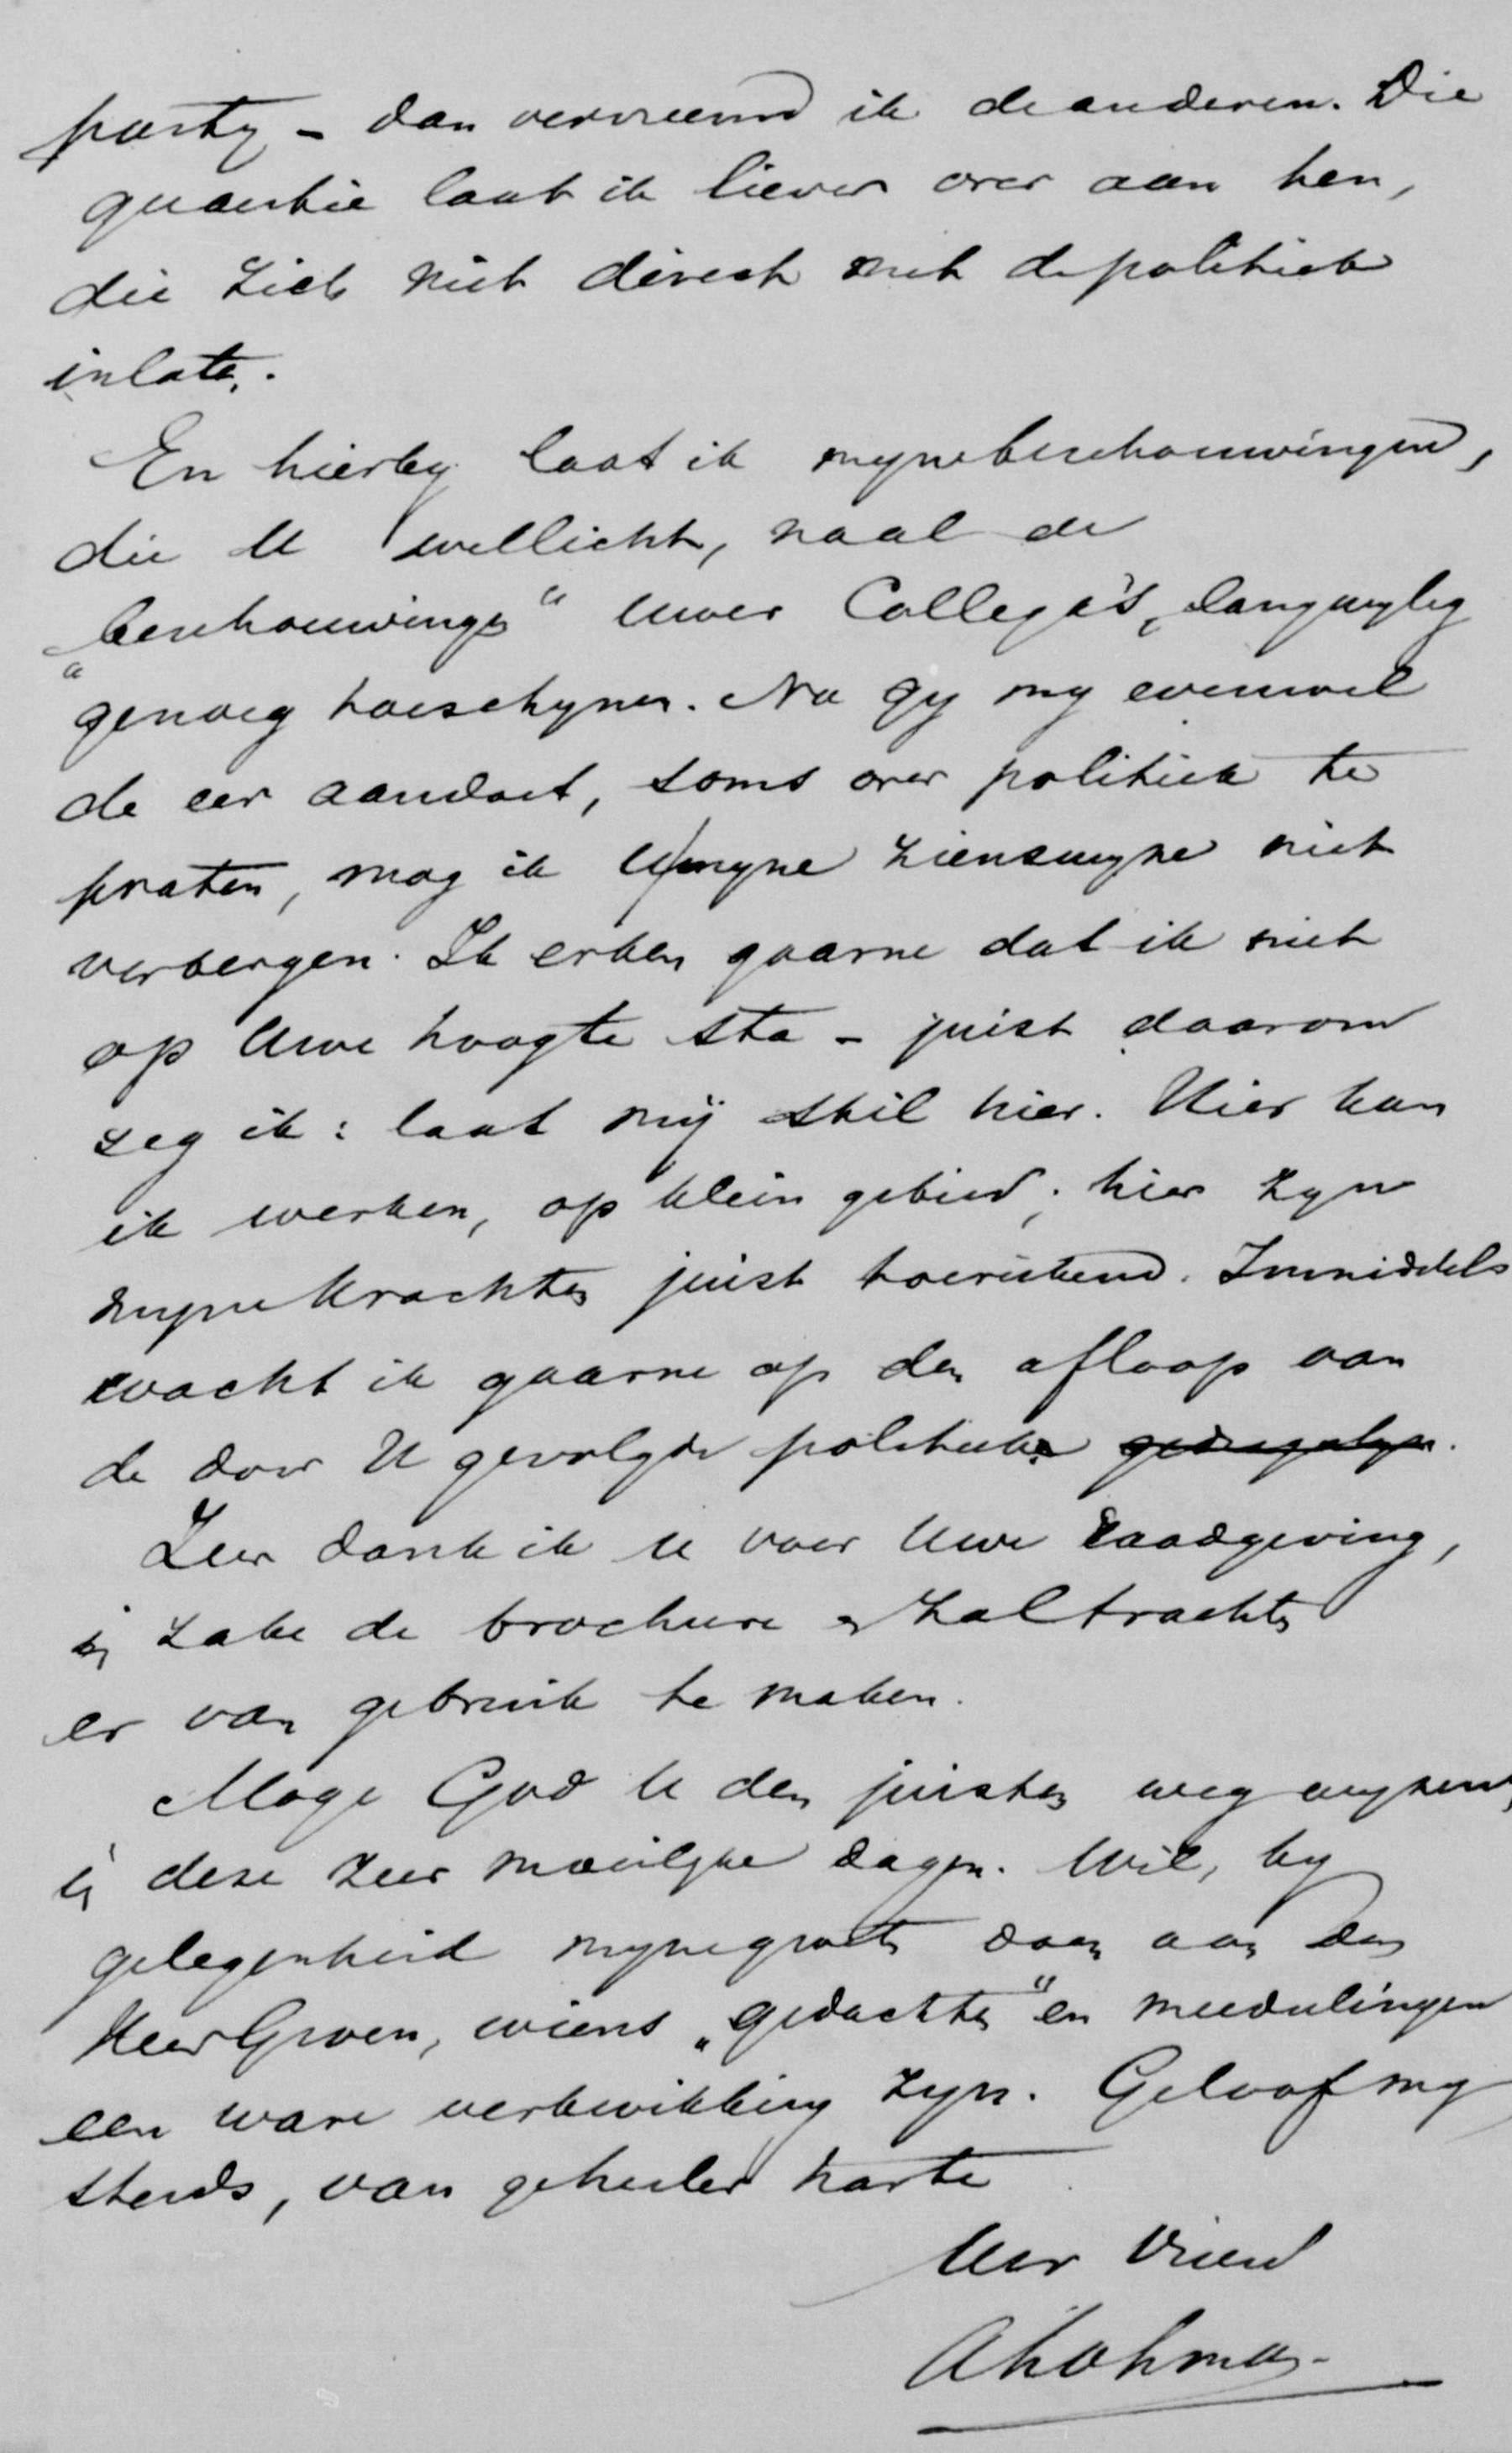 party – dan vervreemd ik de anderen. Die
quaestie laat ik liever over aan hen,
die zich niet direct met de politiek
inlaten.
En hierby laat ik myne beschouwingen,
die U wellicht, naal de
„beschouwingen" Uwer Collega's, langwylig
genoeg toeschynen. Nu gy my evenwel
de eer aandoet, soms over politiek te
praten, mag ik U myne zienswyze niet
verbergen. Ik erken gaarne dat ik niet
op Uwe hoogte sta – juist daarom
zeg ik: laat mij stil hier. Hier kan
ik werken, op klein gebied; hier zyn
myne krachten juist toereikend. Inmiddels
wacht ik gaarne op den afloop van
de door U gevolgde politiek.
Zeer dank ik U voor Uwe raadgeving,
in zake de brochure en zal trachten
er van gebruik te maken.
Moge God U den juisten weg wyzen,
in deze zeer moeilyke dagen. Wil, by
gelegenheid myne groeten doen aan den
Heer Groen, wiens „gedachten" en meedeelingen
een ware verkwikking zyn. Geloof my
steeds, van geheeler harte
Uw Vriend
AFLohman